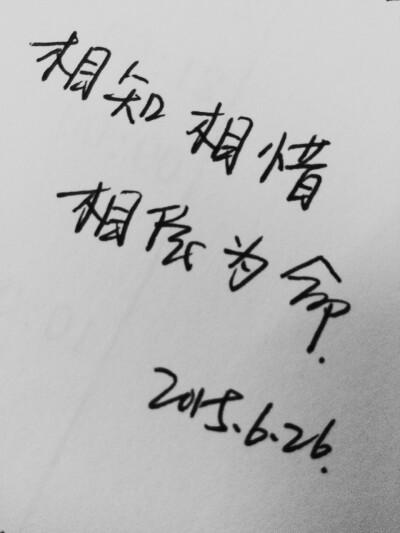 相知相惜
相依为命.
2015.6.26.